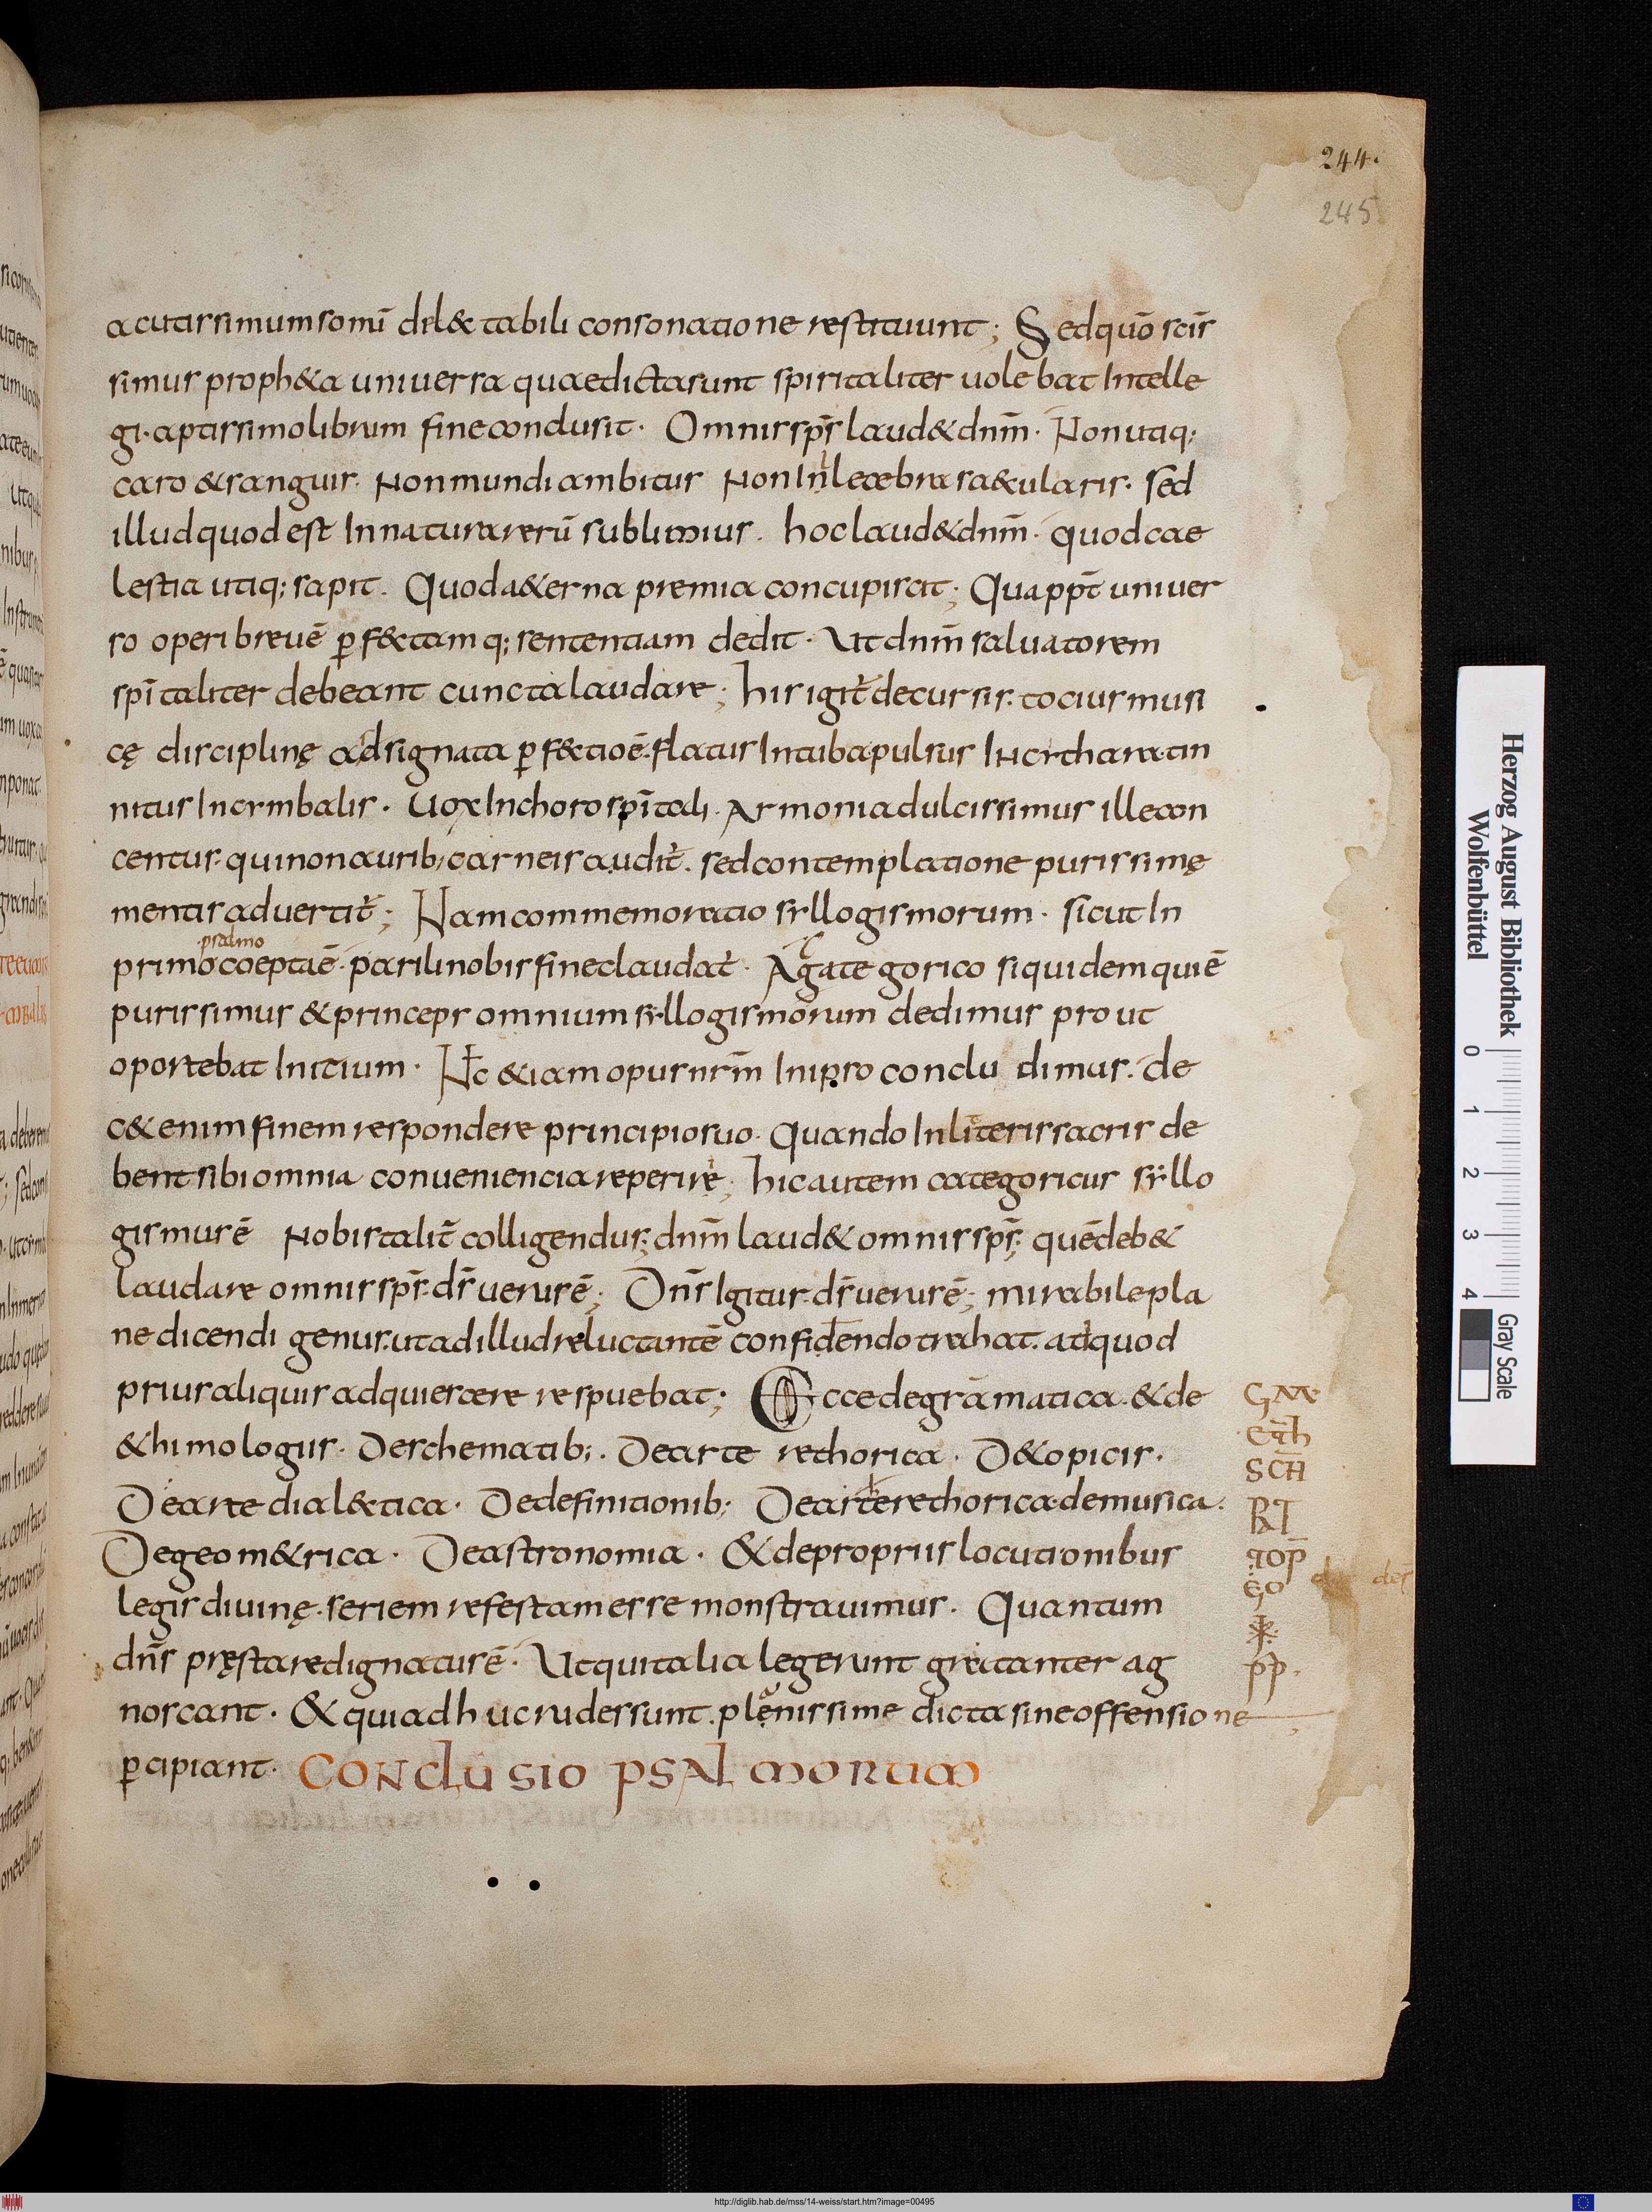 244.
245
acutissimum somū delectabili consonatione restituunt; Sed quō scīs
simus proph&a uniuersa quae dicta sunt spiritaliter uolebat Intelle
gi· aptissimo librum fine conclusit· Omnis sp̄s laud&dnm̄· Non utiq;
caro & sanguis· Non mundi ambitus Non Inlecebra sa&ularis· sed
illud quod est In natura rerū sublimius. hoc laud& dnm̄· quod cae
lestia utiq; sapit. Quod a&erna premia concupiscit; Qua ppt̄ uniuer
so operi breuē ꝑf&tamq; sententiam dedit· Ut dnm̄ saluatorem
spītaliter debeant cuncta laudare; his igit̄ decursis· tocius musi
cę disciplinę adsignata ꝑf&tioē· flatus In tuba· pulsus In cithara· tin
nitus In cimbalis· Uox In choro spītali· Armonia dulcissimus ille con
centus· qui non aurib; carneis audit̄. sed contemplatione purissimę
mentis aduertit̄; Nam commemoratio syllogismorum· sicut In
psalmo
primo coepta ē· parili nobis fine claudat̄· A gategorico siquidem qui ē
purissimus & princeps omnium syllogismorum dedimus prout
oportebat Initium· Nc̄ &iam opus nrm̄ In ipso concludimus· de
c& enim finem respondere principio suo· Quando In literis sacris de
bent sibi omnia conueniencia reperire; hic autem categoricus syllo
gismus ē Nobis talit̄ colligendus; dnm̄ laud& omnis sp̄s; quē deb&
laudare omnis sp̄s· dr̄ uerus ē; Dn̄s Igitur· dr̄ uerus ē; mirabile pla
ne dicendi genus· ut ad illud reluctantē confidendo trahat· ad quod
prius aliquis adquiescere respuebat; Ecce de grāmatica· & de
&himologiis· De schematib;· De arte rethorica· D&opicis·
De arte dial&tica· De definitionib; De arte rethorica· de musica·
De geom&rica· De astronomia· & de propriis locutionibus
legis diuinę· seriem refestam esse monstrauimus· Quantum
dn̄s pręstare dignatus ē· Ut qui talia legerunt gratanter ag
noscant· & qui adhuc rudes sunt· plęnissime dicta sine offensione
ꝑcipiant· CONCLUSIO PSALMORUM
eth̄
SCH̄
RT
TOP̄
GO
pp·
Herzog August Bibliothek
Wolfenbüttel
0 1 2 3 4
Gray Scale
http://diglib.hab.de/mss/14-weiss/start.htm?image=00495